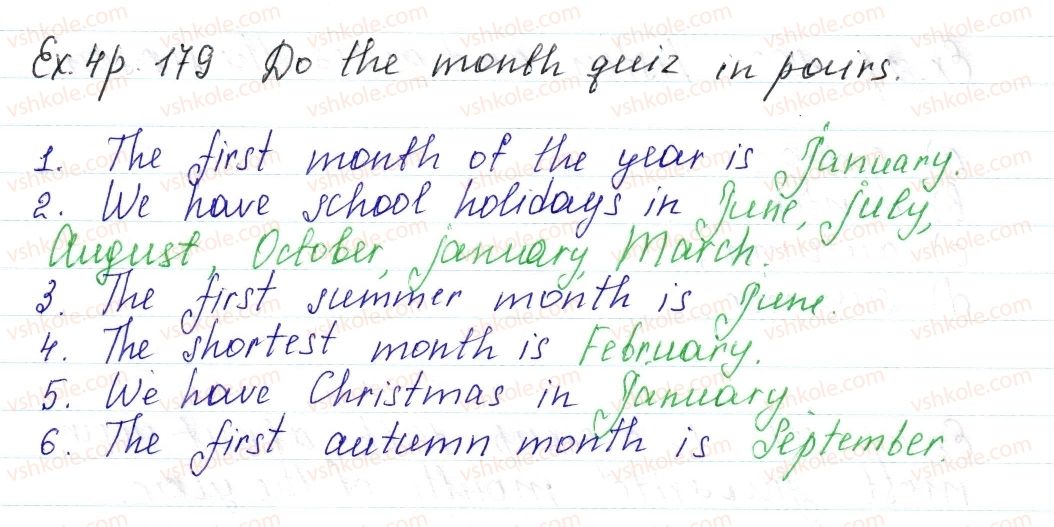 Ex. 4 p. 179 Do the month quiz in pairs.
1. The first month of the year is January.
2. We have school holidays in June, july,
August, October, january, March.
3. The first summer month is June.
4. The shortest month is February.
5. We have Christmas in January
6. The first autumn month is September.